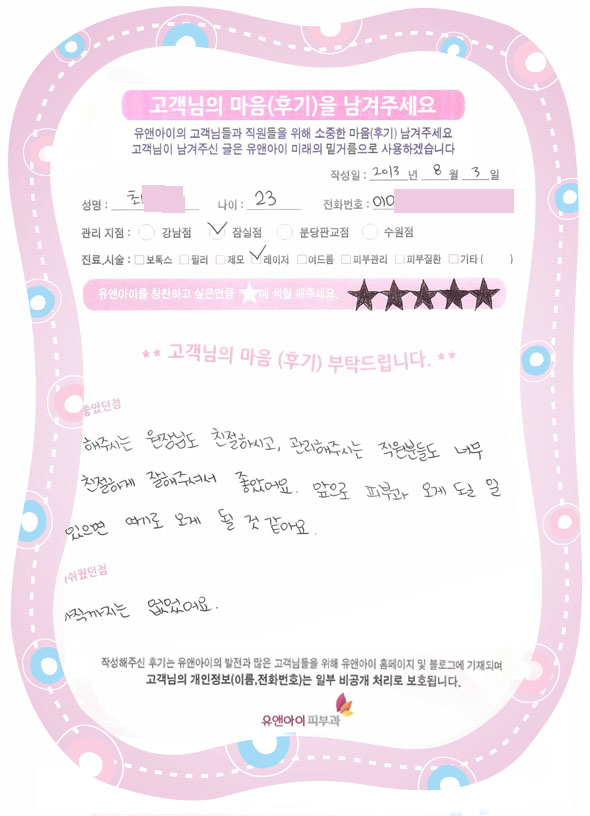 고객님의 마음(후기)을 남겨주세요
유앤아이의 고객님들과 직원들을 위해 소중한 마음(후기) 남겨주세요
고객님이 남겨주신 글은 유앤아이 미래의 밑거름으로 사용하겠습니다
작성일 : 2013 년 8 월 3 일
성명 : 최 나이 : 23 전화번호 : 010
관리 지점 : 강남점 잠실점 분당판교점 수원점
진료,시술 : 보톡스 필러 제모 레이저 여드름 피부관리 피부질환 기타 ( )
유앤아이를 칭찬하고 싶은만큼 ★에 색칠 해주세요. ★★★★★
** 고객님의 마음 (후기) 부탁드립니다. **
좋았던점
해주시는 원장님도 친절하시고, 관리해주시는 직원분들도 너무
친절하게 잘해주셔서 좋았어요. 앞으로 피부과 오게 될 일
있으면 여기로 오게 될 것 같아요.
쉬웠던점
직까지는 없었어요.
작성해주신 후기는 유앤아이의 발전과 많은 고객님들을 위해 유앤아이 홈페이지 및 블로그에 기재되며
고객님의 개인정보(이름,전화번호)는 일부 비공개 처리로 보호됩니다.
유앤아이피부과